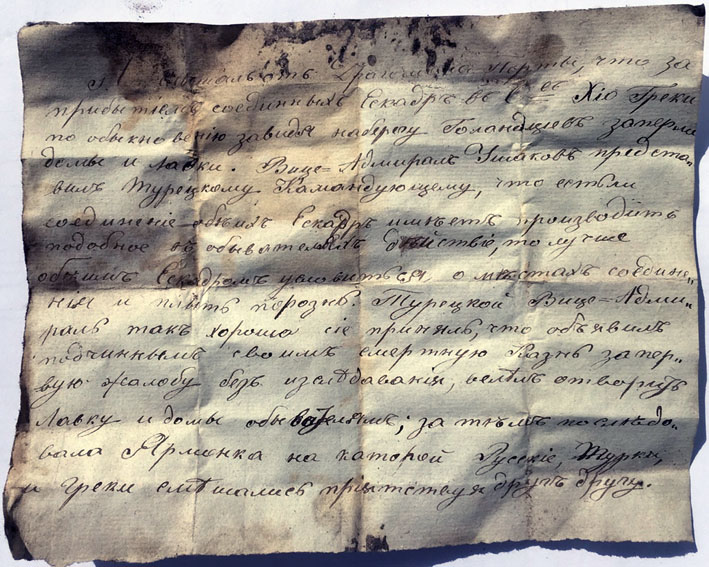 что за
прибытiемъ соединныхъ Ескадръ въ Хiо Греки
по обыкновенiю завидя на берегу Голандцевъ заперли
домы и лавки. Вице=Адмиралъ Ушаковъ предста-
вилъ Турецкому Камандующему, что естьли
соединенiе обѣихъ Ескадръ имѣетъ производить
подобное въ обывателяхъ дѣйствiе, то лучше
обѣимъ Ескадромъ условиться о мѣстахъ соедине-
нiя и плыть порознь. Турецкой Вице=Адми-
ралъ такъ хорошо сiе принялъ, что объявилъ
подчиннымъ своимъ смертную казнь за пер-
вую жалобу безъ изслѣдаванiя, велѣлъ отворить
лавку и домы обывателямъ; за тѣмъ послѣдо-
вала Ярмонка на каторой Русскiе, Турки,
и Греки смѣшались прiятствуя другъ другу.